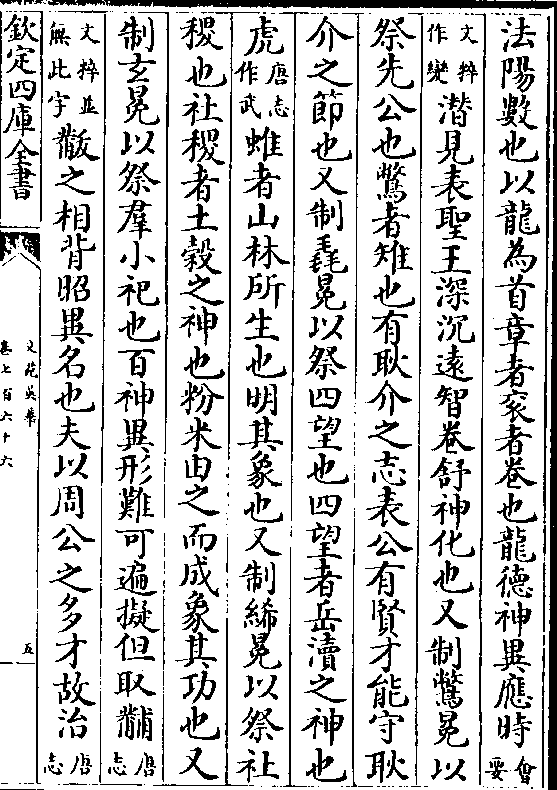 法陽數也以龍為首章者衮者卷也龍德神異應時會要
文粹作變潛見表聖王深沉遠智卷舒神化也又制鷩冕以
祭先公也鷩者雉也有耿介之志表公有賢才能守耿
介之節也又制毳冕以祭四望也四望者岳瀆之神也
虎唐志作武蜼者山林所生也明其象也又制絺冕以祭社
稷也社稷者土穀之神也粉米由之而成象其功也又
制玄冕以祭羣小祀也百神異形難可遍擬但取黼唐志
文粹並無此字黻之相背昭異名也夫以周公之多才故治唐志
欽定四庫全書
文苑英華
卷七百六十六
五